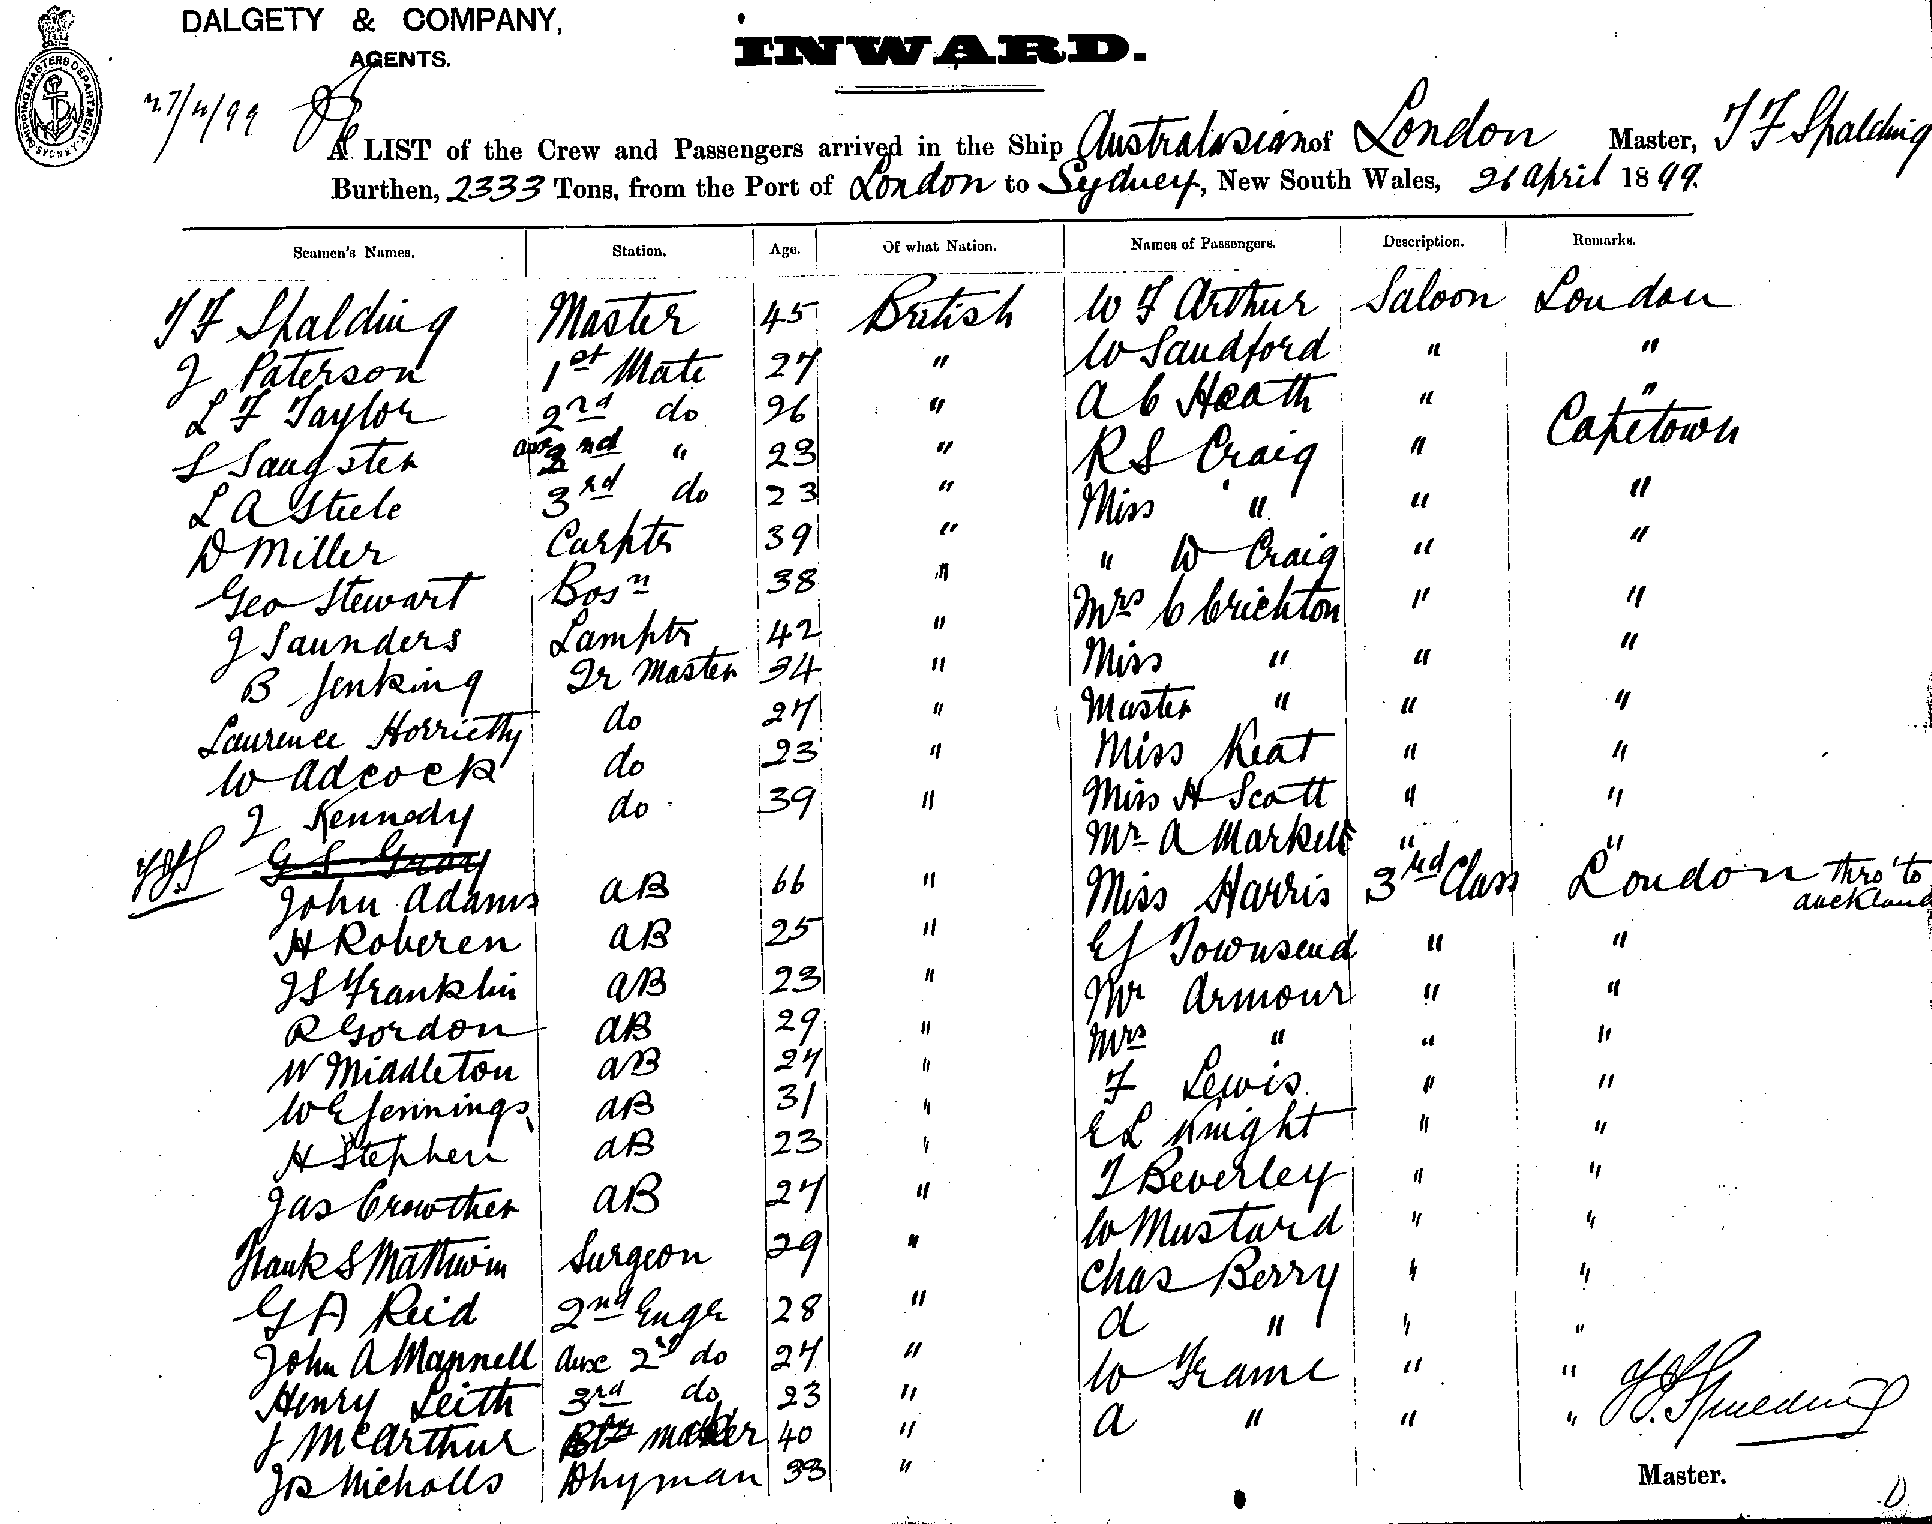 DALGETY & COMPANY,
AGENTS.
INWARD.
SHIPPING MASTERS DEPARTMENT SYDNEY
27/4/99
A LIST of the Crew and Passengers arrived in the Ship Australasian of London Master, T F Spalding
Burthen, 2333 Tons, from the Port of London to Sydney, New South Wales, 26 April 1899.
Seamen's Names. Station. Age. Of what Nation. Names of Passengers. Description. Remarks.
T F Spalding Master 45 British W F Arthur Saloon London
J Paterson 1st Mate 27 " W Sandford " "
L F Taylor 2nd do 26 " A C Heath " "
S Sangster 2nd " 23 " R S Craig " Capetown
L A Steele 3rd do 23 " Miss " " "
D Miller Carptr 39 " " W Craig " "
Geo Stewart Bosn 38 " Mrs C Crichton " "
J Saunders Lamptr 42 " Miss " " "
B Jenking Qr Master 34 " Master " " "
Laurence do 27 " Miss Keat " "
W Adcock do 23 " Miss H Scott " "
J Kennedy do 39 " Mr A Markell " "
G S Gray
John Adams AB 66 " Miss Harris 3rd Class London thro' to Auckland
H Roberen AB 25 " E J Townsend " "
J S Franklin AB 23 " Mr Armour " "
R Gordon AB 29 " Mrs " " "
W Middleton AB 27 " F Lewis " "
W E Jennings AB 31 " E L Knight " "
H Stephen AB 23 " T Beverley " "
Jas Crowther AB 27 " W Mustard " "
Frank S Mathwin Surgeon 29 " Chas Berry " "
G A Reid 2nd Engr 28 " A " " "
John A Mannell Aux 2nd do 27 " W Frame " "
Henry Leith 3rd do 23 " A " " "
J McArthur maker 40 "
Jas Nicholls Dkyman 33 "
Master.